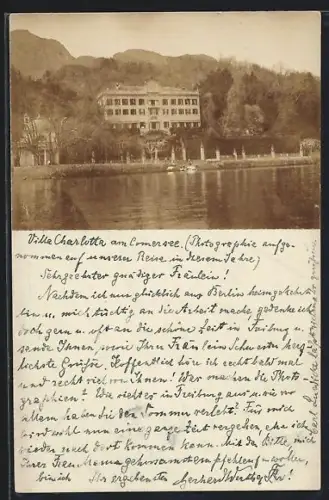 Villa Charlotta am Comersee. (Photographie aufge-
nommen auf unserer Reise in diesem Jahre)
Sehrgeehrter gnädiger Fräulein!
Nachdem ich nun glücklich aus Berlin heimgekehrt
bin u. mich tüchtig an die Arbeit mache gedenke ich
doch gern u. oft an die schöne Zeit in Freiburg u.
sende Ihnen, sowie Ihrn Fräulein Schwester herz-
lichste Grüße. Hoffentlich höre ich recht bald mal
und recht viel von Ihnen! War machen die Photo-
graphien? Wie sieht es in Freiburg aus u. wo vor
allem haben Sie den Sommer verlebt? Für mich
wird wohl nun eine ganze Zeit vergehen, ehe ich
wieder nach dort kommen kann. Mit der Bitte, mich
Ihrer Frau Mama gehorsamst empfehlen zu wollen,
bin ich Ihr ergebenster